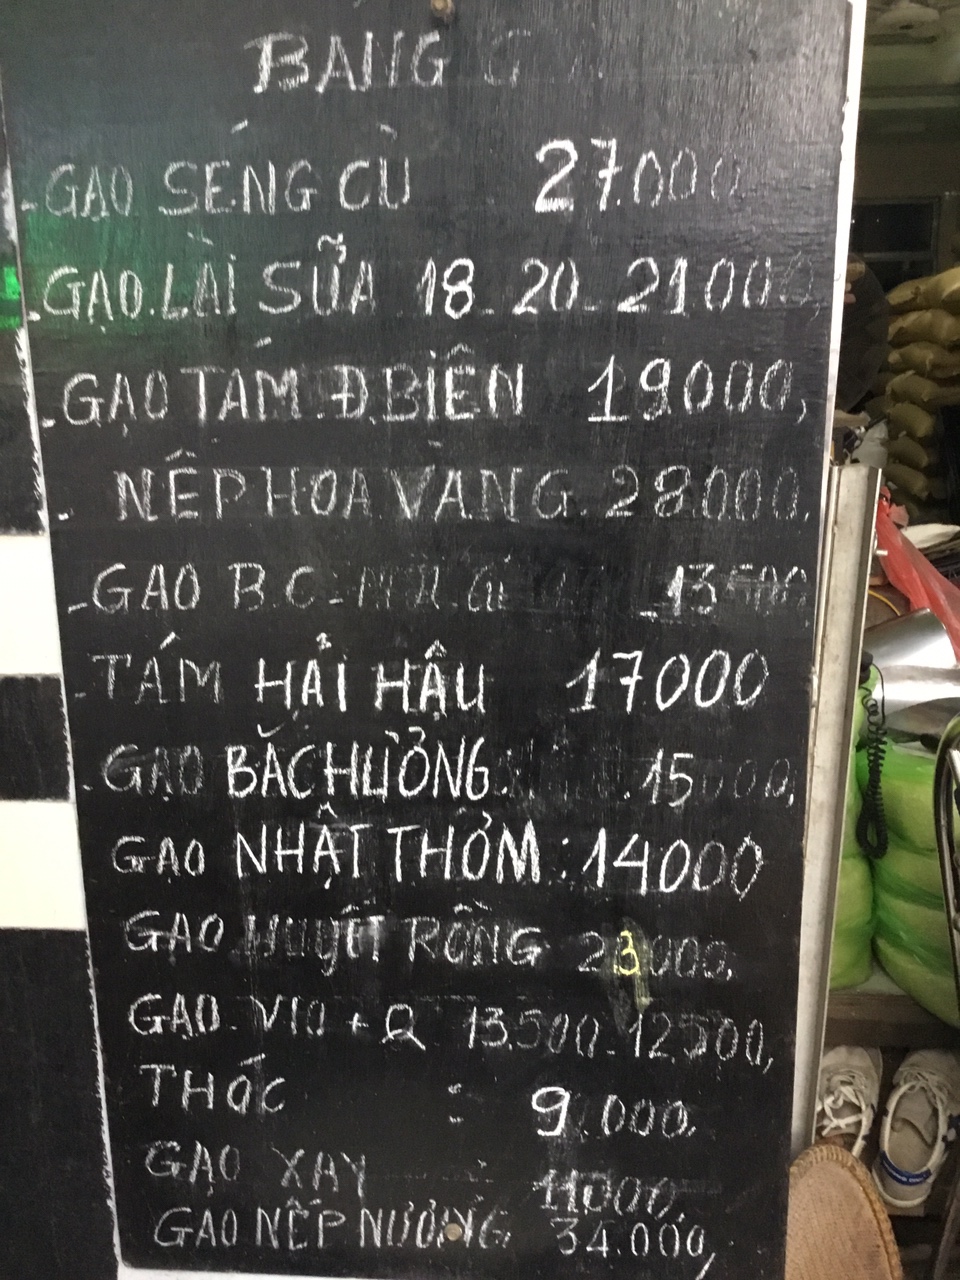 BẢNG G
- GẠO SÉNG CÙ 27.000
- GẠO.LÀI SỮA 18_20_21000,
- GẠO TÁM Đ.BIÊN 19000,
- NẾP HOA VÀNG. 28.000.
- GẠO B.C: 13500
- TÁM HẢI HẬU 17000
- GẠO BẮC HƯỞNG. 15000,
GẠO NHẬT THỞM : 14000
GẠO HUYẾT RỒNG 23000.
GẠO. V10 + Q 13.500_12500,
THÓC : 9.000.
GẠO XAY : 11000.
GẠO NẾP NƯƠNG 34.000,